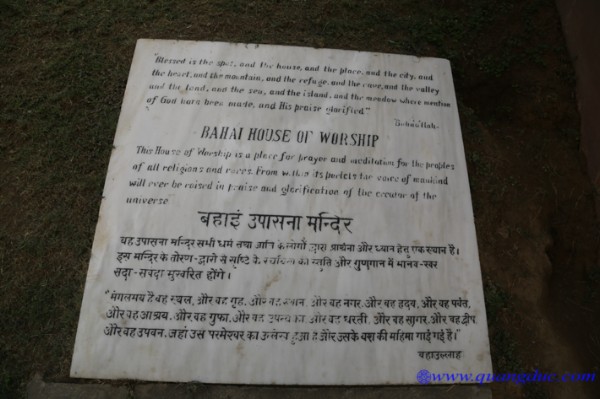 "Blessed is the spot, and the house, and the place, and the city, and
the heart, and the mountain, and the refuge, and the cave, and the valley
and the land, and the sea, and the island, and the meadow where mention
of God hath been made, and His praise glorified"
Baha'u'llah.
BAHAI HOUSE OF WORSHIP
This House of Worship is a place for prayer and meditation for the peoples
of all religions and races. From within its portals the voice of mankind
will ever be raised in praise and glorification of the creator of the
universe
बहाई उपासना मन्दिर
यह उपासना मन्दिर सभी धर्म तथा जाति के लोगों द्वारा प्रार्थना और ध्यान हेतु एक स्थान है।
इस मन्दिर के तोरण-द्वारों से सृष्टि के की स्तुति और गुणगान में मानव-स्वर
सदा-सर्वदा मुखरित होंगे।
"मंगलमय है वह स्थल, और वह गृह, और वह स्थान, और वह नगर, और वह हृदय, और वह पर्वत,
और वह आश्रय, और वह गुफा, और वह उपत्यका, और वह धरती, और वह सागर, और वह द्वीप
और वह उपवन, जहां उस परमेश्वर का उल्लेख हुआ है और उसके यश की महिमा गाई गई है।"
बहाउल्लाह
www.quangduc.com